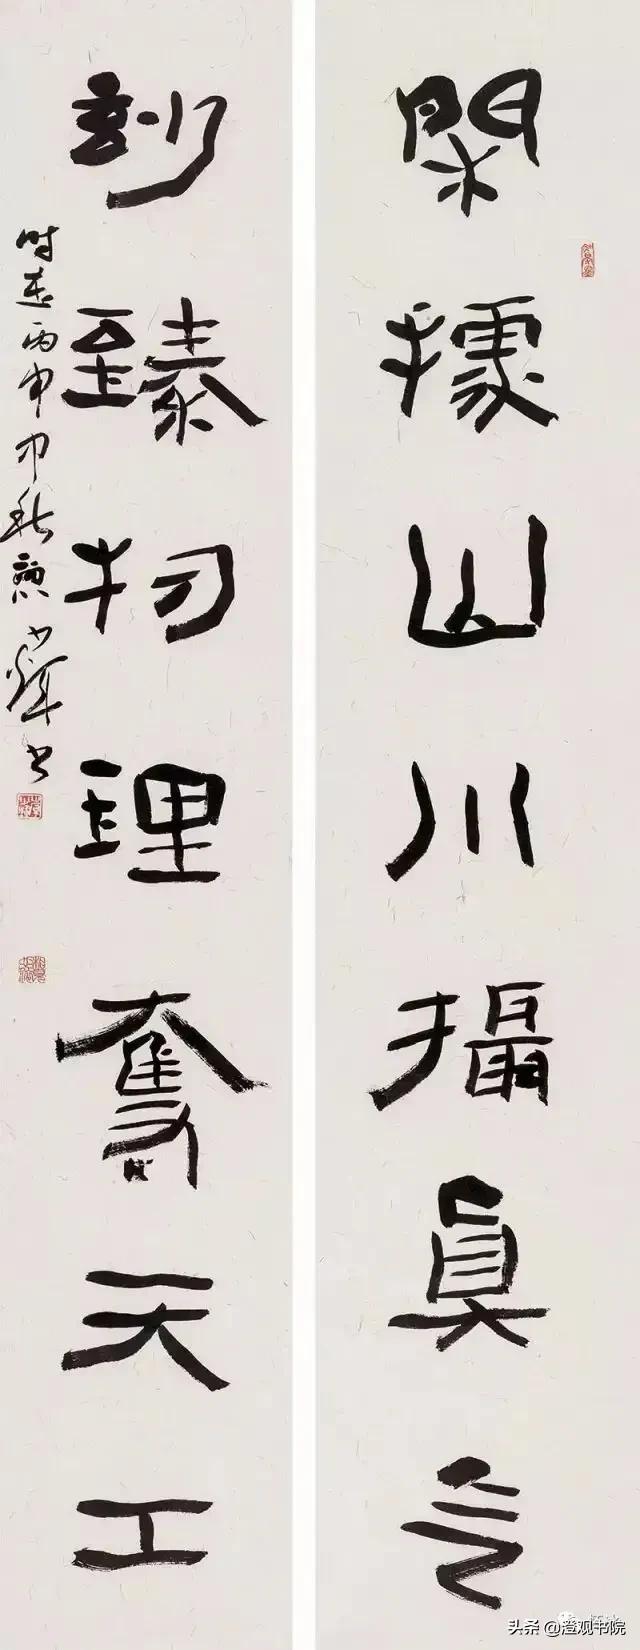 閑據山川攝眞气
玅臻物理奪天工
时在丙申中秋 书
头条 @澄观书院